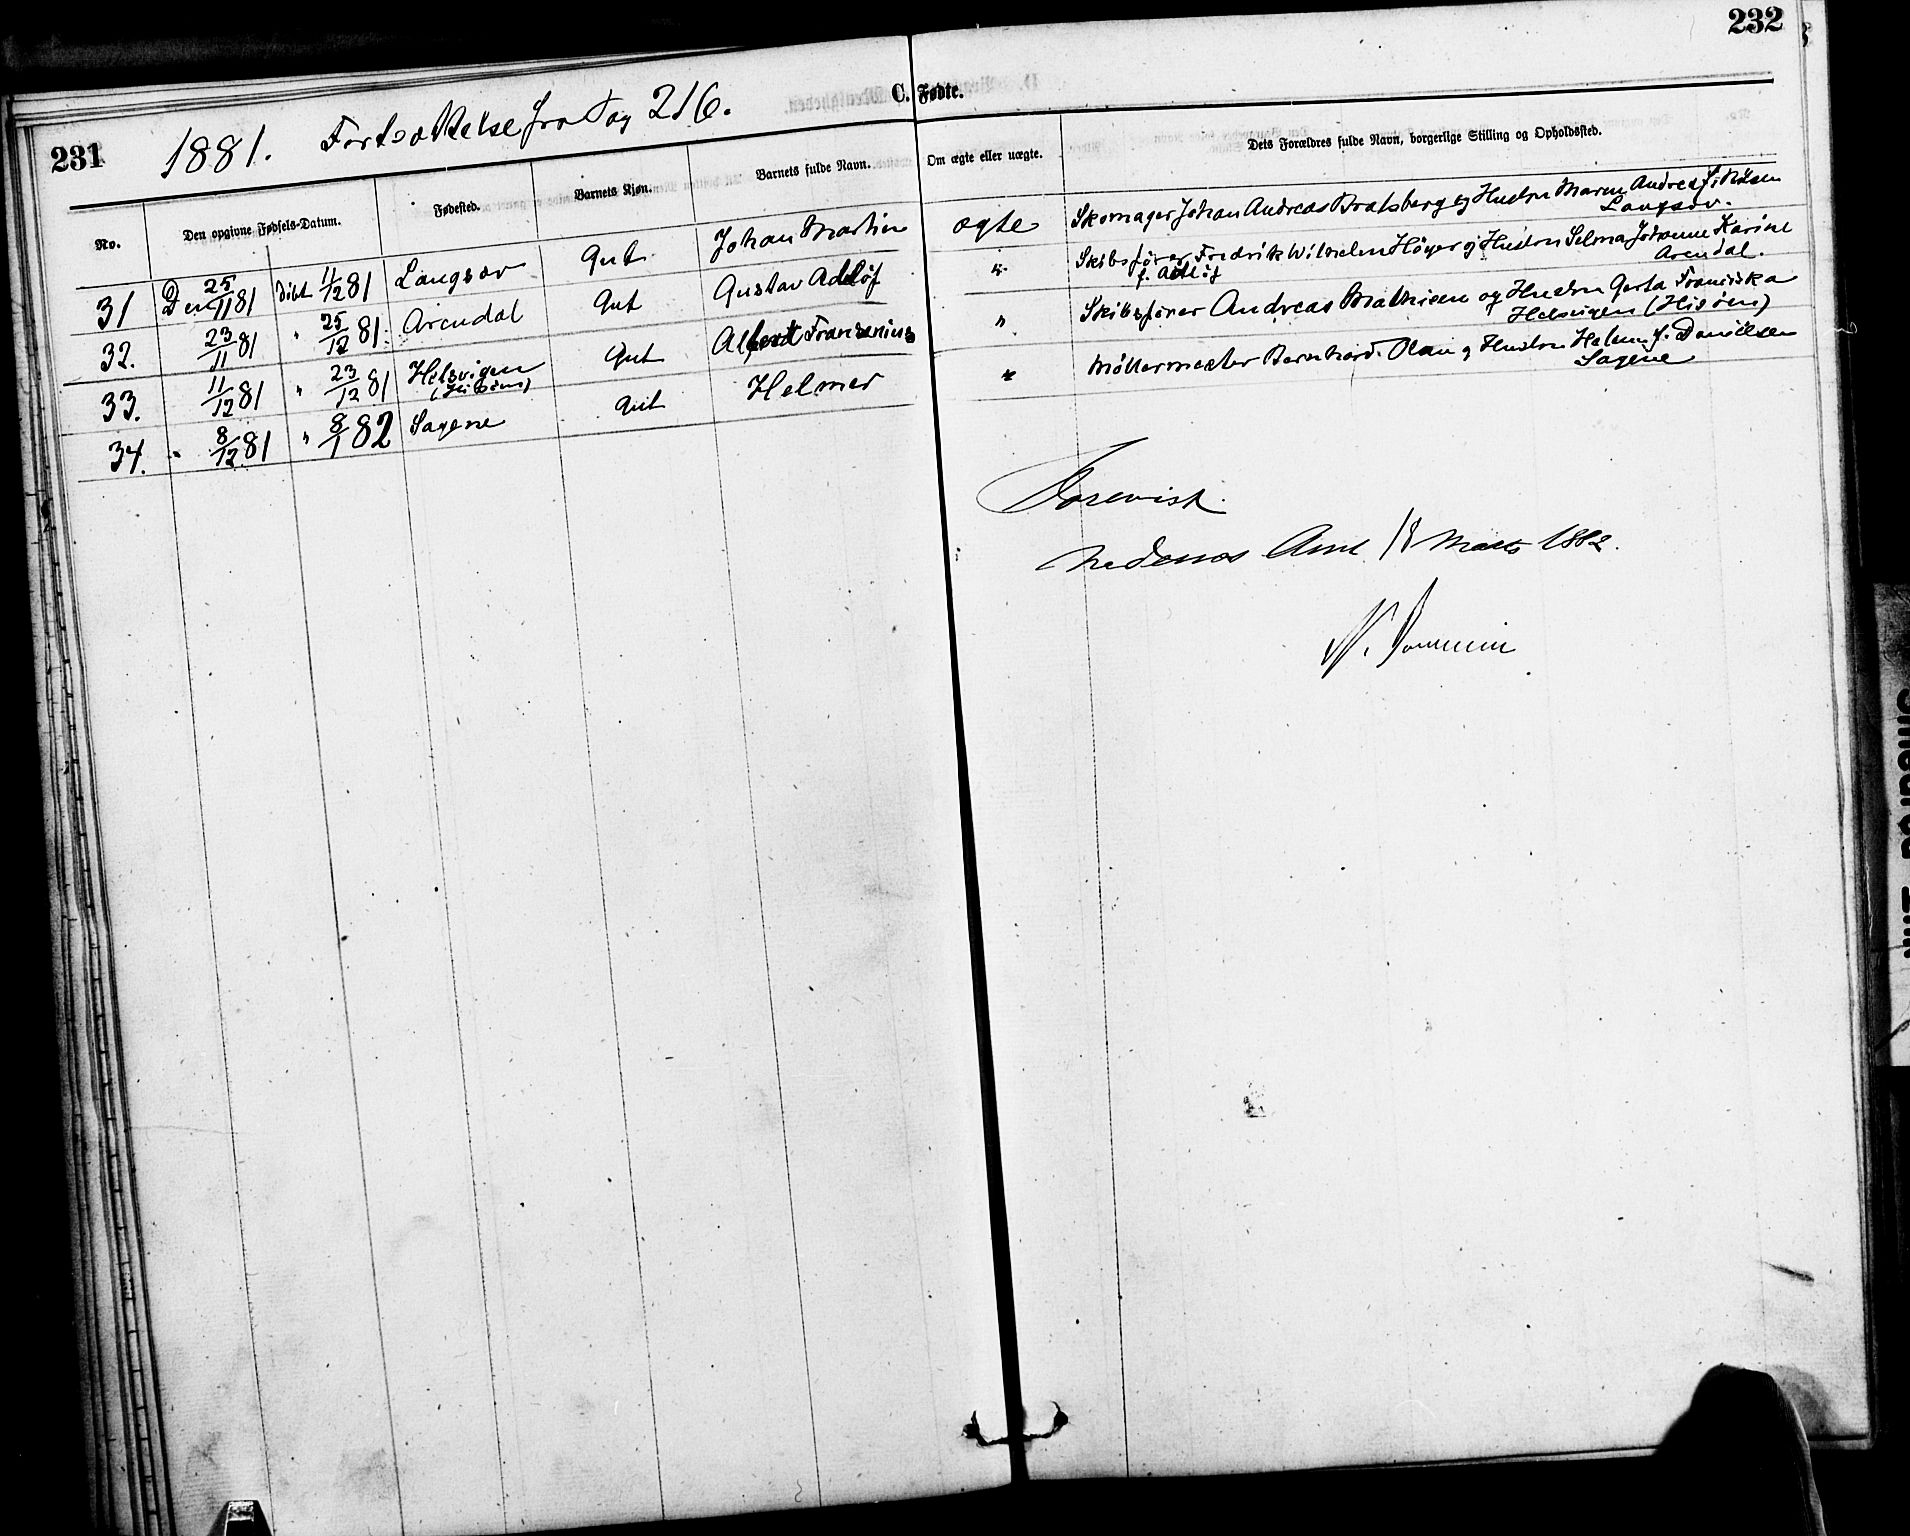 231
232
1881. Fortsættelse fra Pag 216.
C. Fødte.
No. Den opgivne Fødsels-Datum. Fødested. Barnets Kjøn. Barnets fulde Navn. Om ægte eller uægte. Dets Forældres fulde Navn, borgerlige Stilling og Opholdssted.
31 Den 25/11 81 Døbt 11/12 81 Langsæv Gut Johan Martin ægte Skomager Johan Andreas Bratsberg og Hustru Maren Andrea f. Nilsen
Langsæv.
32. 23/11 81 " 25/12 81. Arendal Gut Gustav Adlöf " Skibsfører Fredrik Wilhelm Höyer og Hustru Selma Johanne Karine
f. Adlöf Arendal.
33. 11/12 81 " 23/12 81 Helsvigen Gut Alfred " Skibsfører Andreas Mathisen og Hustru Gerta Franciska
(Hisöen) Helsvigen (Hisöen)
34. " 8/12 81 " 8/1 82 Sagene Gut Helmer " Möllermester Bernhard Olsen og Hustru Helene f. Danielsen
Sagene
Forevist.
Nedenes Amt 18 Marts 1882.